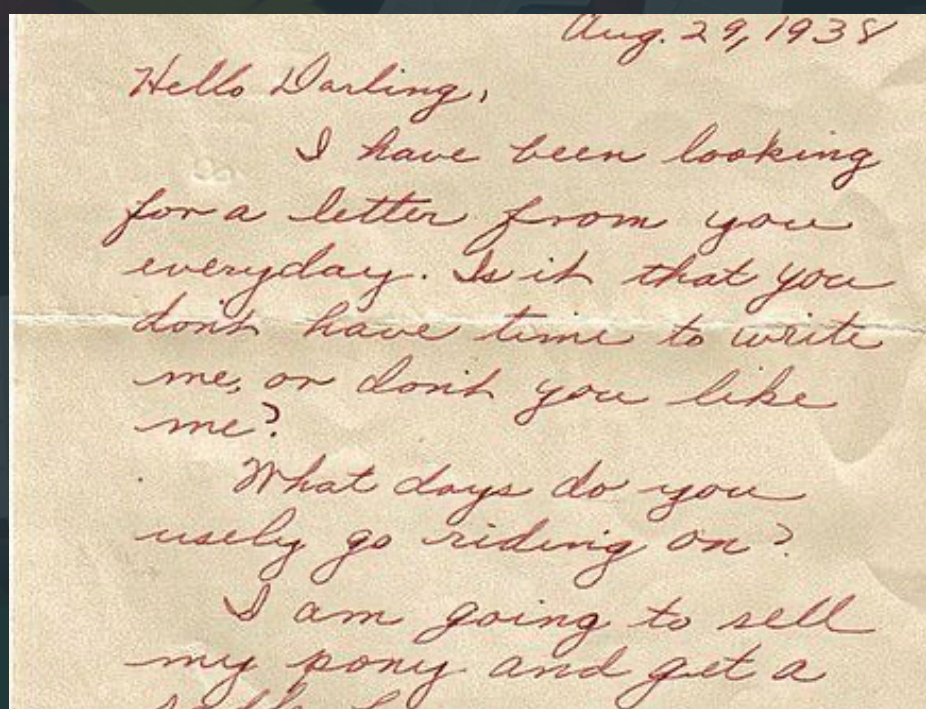 Aug. 29, 1938
Hello Darling,
I have been looking
for a letter from you
everyday. Is it that you
don't have time to write
me, or don't you like
me?
What days do you
usely go riding on?
I am going to sell
my pony and get a